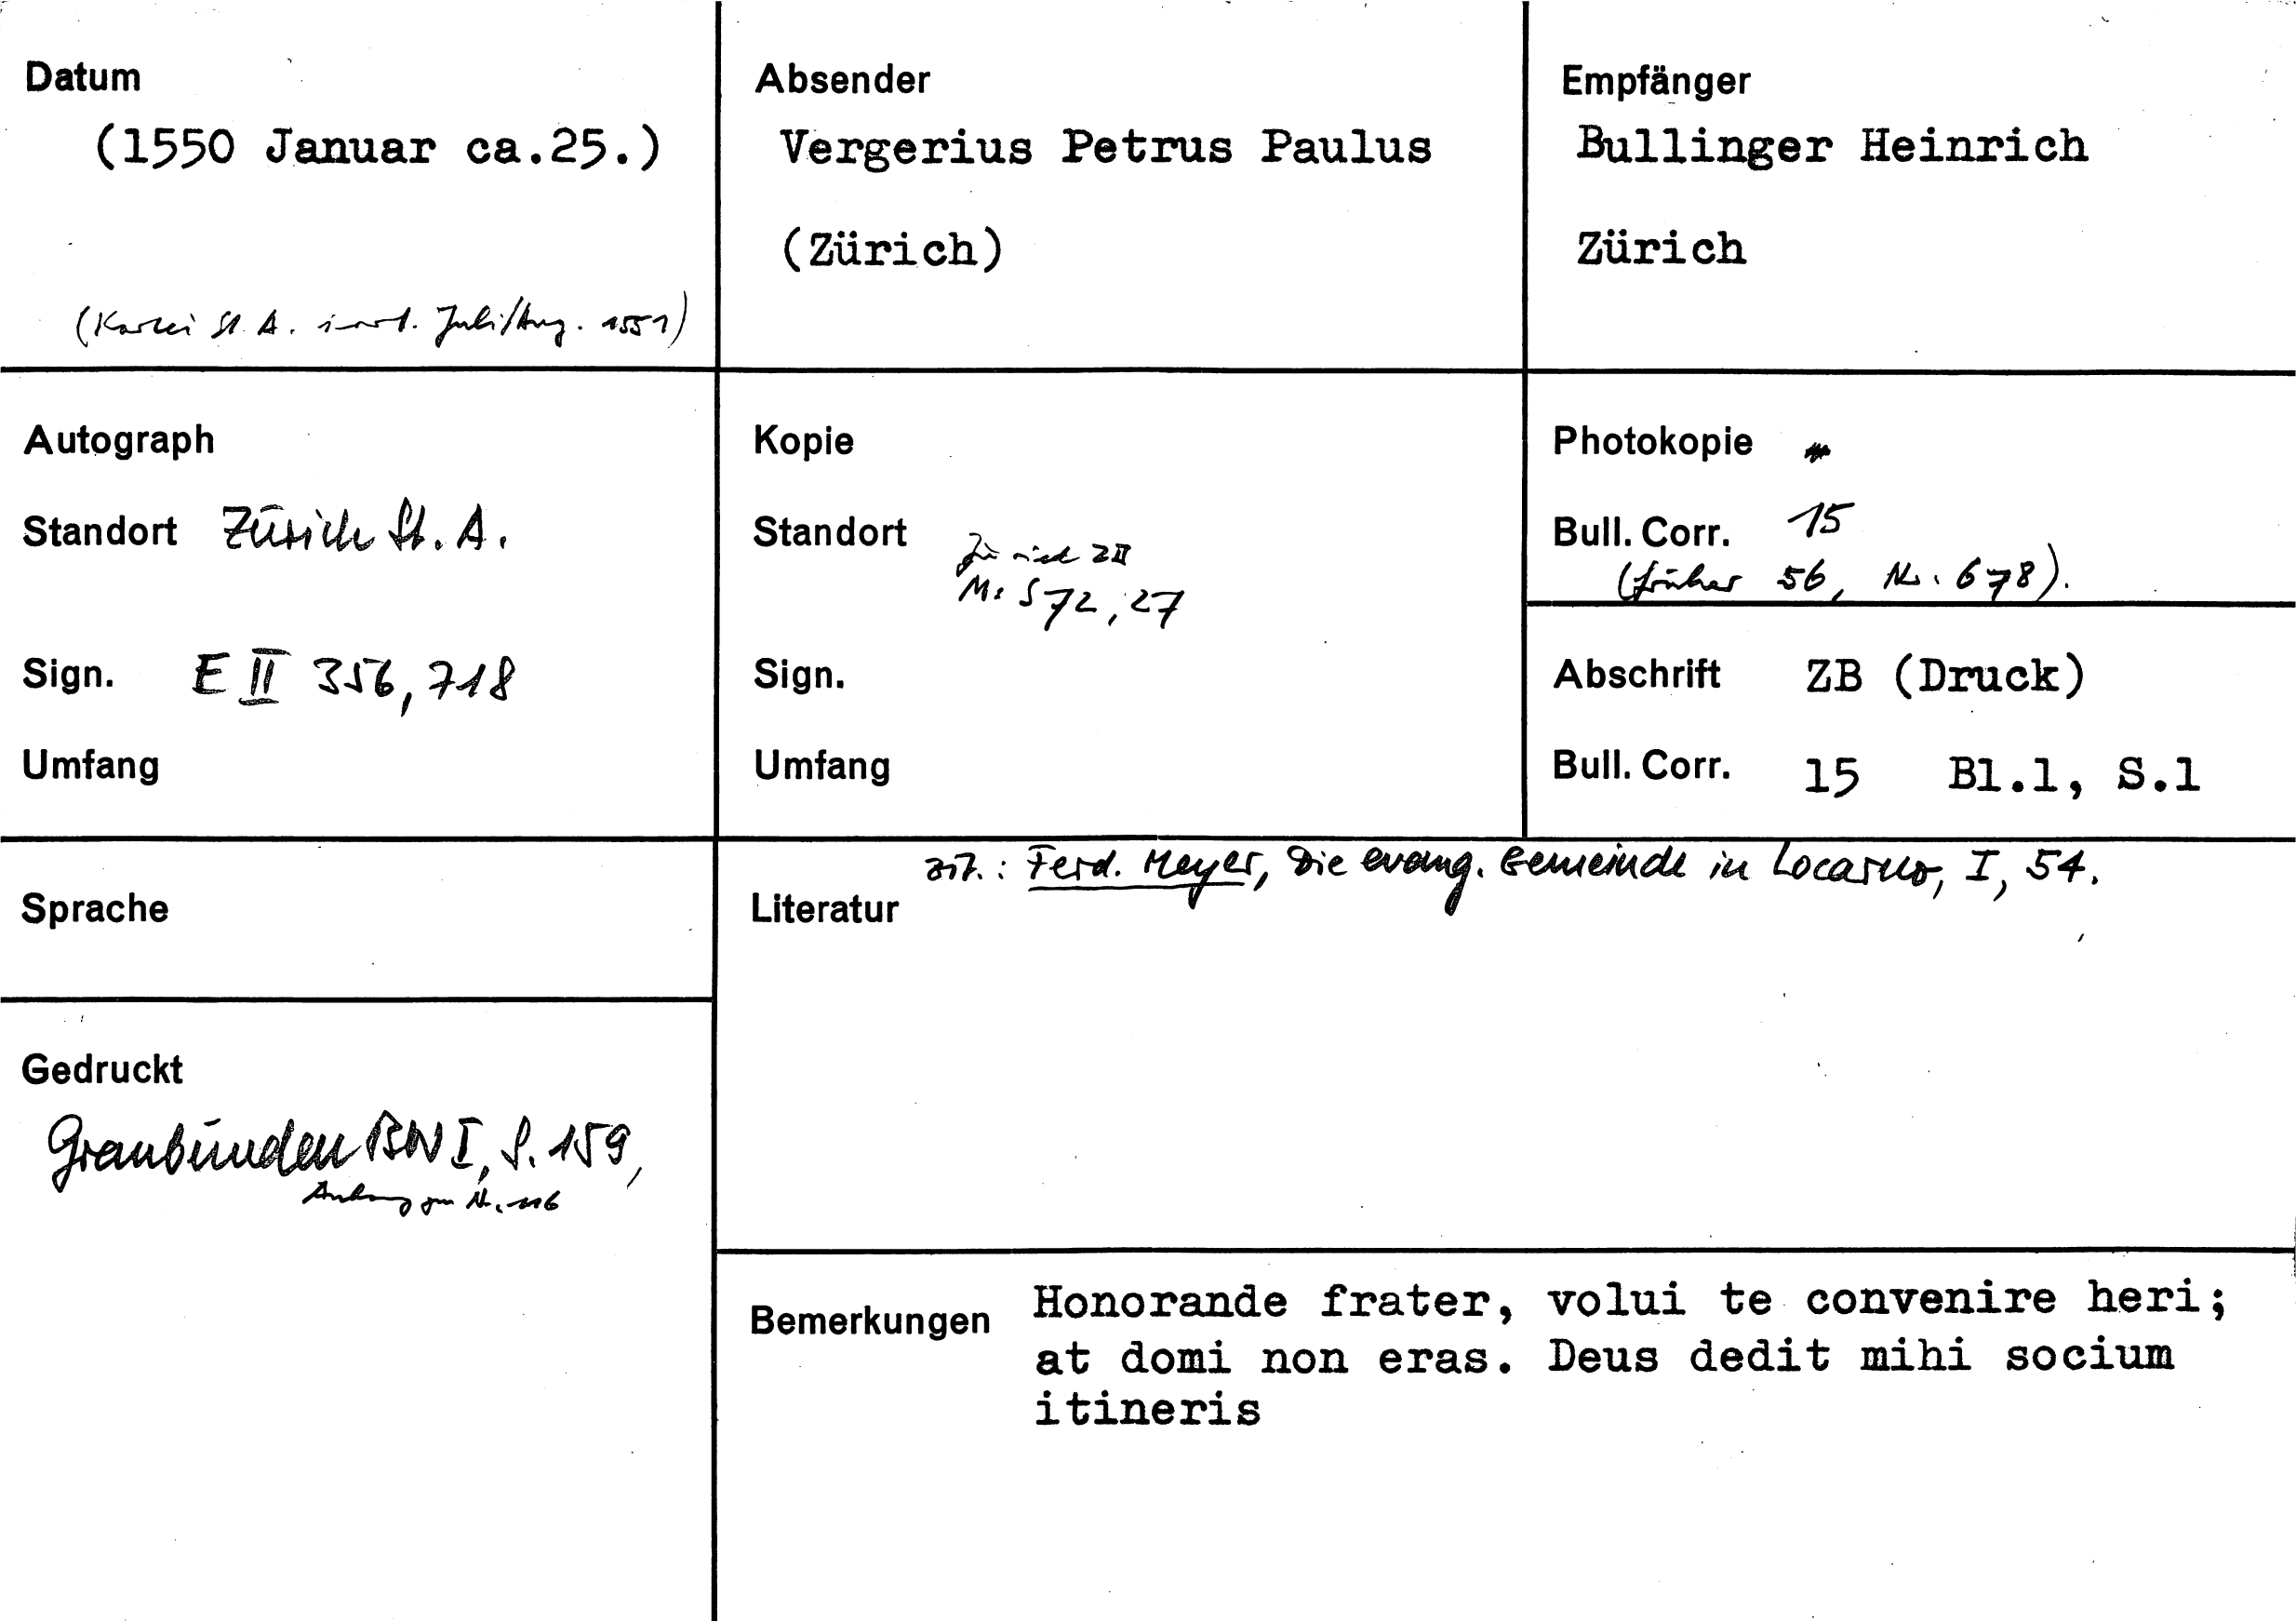 Datum
(1550 Januar ca.25.)
(Kartei St. A. Juli/Aug. 1551)
Absender
Vergerius Petrus Paulus
(Zürich)
Empfänger
Bullinger Heinrich
Zürich
Autograph
Standort Zürich St. A.
Sign. E II 356, 718
Umfang
Kopie
Standort
Zürich ZB
Ms S 72, 27
Sign.
Umfang
Photokopie
Bull. Corr. 15
(früher 56, Nr. 678).
Abschrift ZB (Druck)
Bull. Corr. 15 Bl.1, S.1
Sprache
zit.: Ferd. Meyer, Die evang. Gemeinde in Locarno, I, 54.
Literatur
Gedruckt
Graubünden BW I, S. 159,
Anhang zu Nr. 116
Bemerkungen Honorande frater, volui te convenire heri;
at domi non eras. Deus dedit mihi socium
itineris